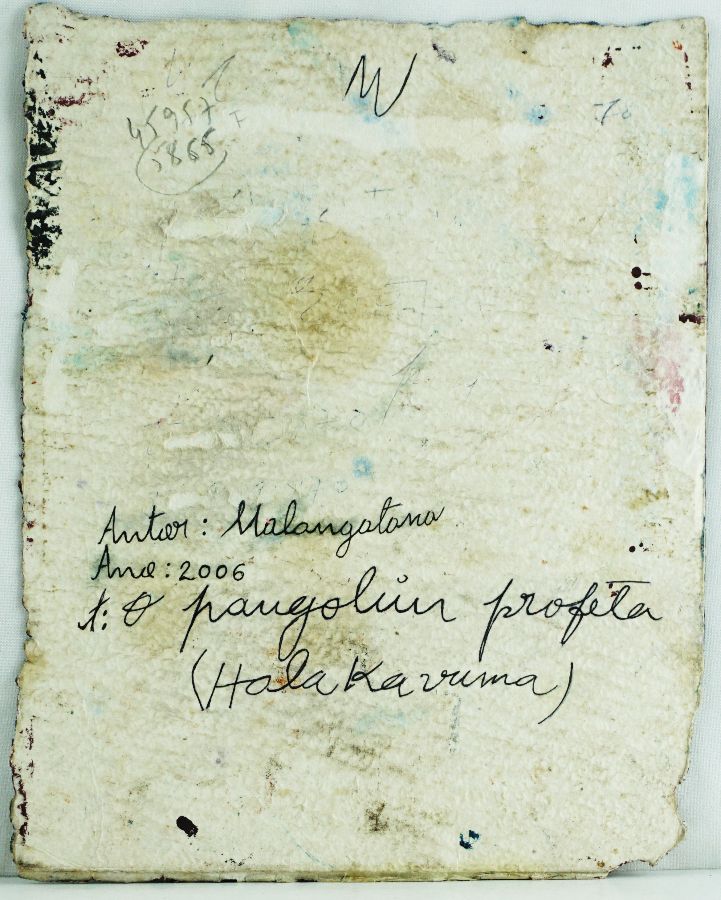 45957
2865
Autor: Malangatana
Ano: 2006
t: O pangolim profeta
(Halakavuma)